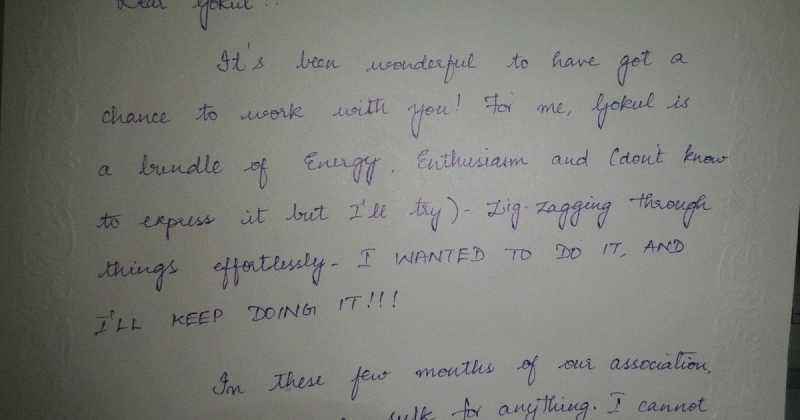 Dear Gokul!!
It's been wonderful to have got a
chance to work with you! For me, Gokul is
a bundle of Energy, Enthusiasm and (don't know
to express it but I'll try)- Zig-zagging through
things effortlessly- I WANTED TO DO IT, AND
I'LL KEEP DOING IT!!!
In these few months of our association,
sulk for anything. I cannot